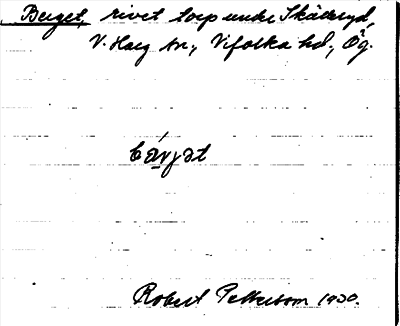 Berget, rivet torp under Skäderyd,
V. Harg sn, Vifolka hd, Ög.
bärjət
Robert Pettersson 1930.